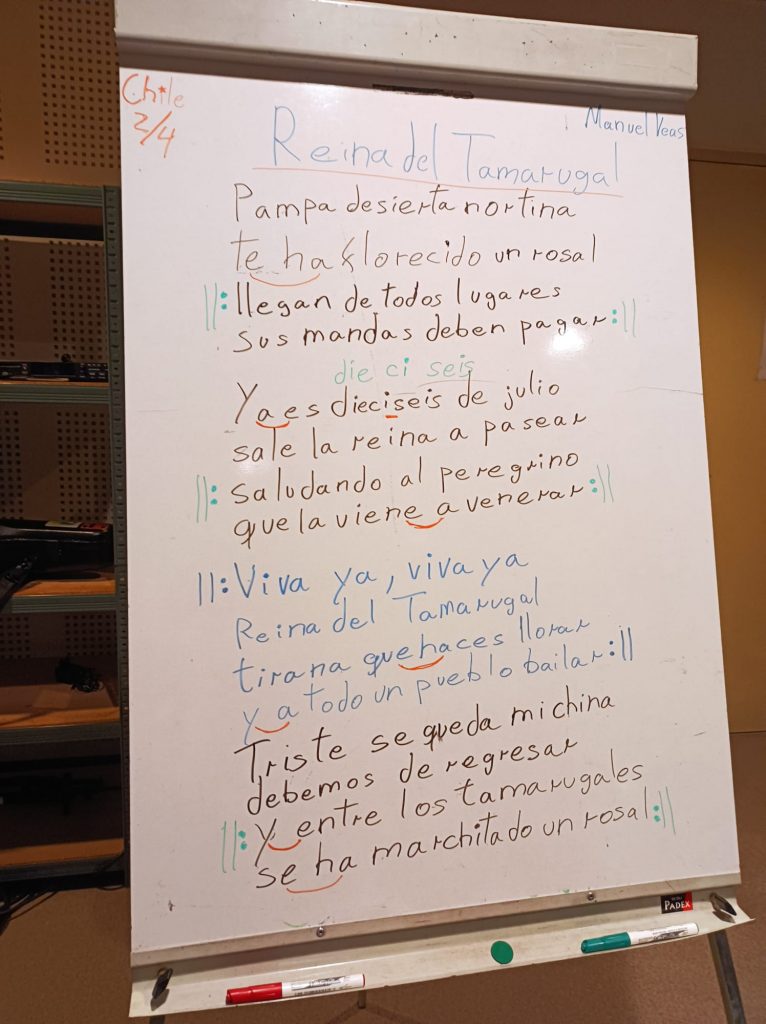 Chile
2/4
Manuel Veas
Reina del Tamarugal
Pampa desierta nortina
te ha florecido un rosal
||: llegan de todos lugares
sus mandas deben pagar :||
die ci seis
Ya es dieciseis de julio
sale la reina a pasear
||: saludando al peregrino
que la viene a venerar :||
||: Viva ya, viva ya
Reina del Tamarugal
tirana que haces llorar
y a todo un pueblo bailar :||
Triste se queda mi china
debemos de regresar
||: y entre los tamarugales
se ha marchitado un rosal :||
PADEX